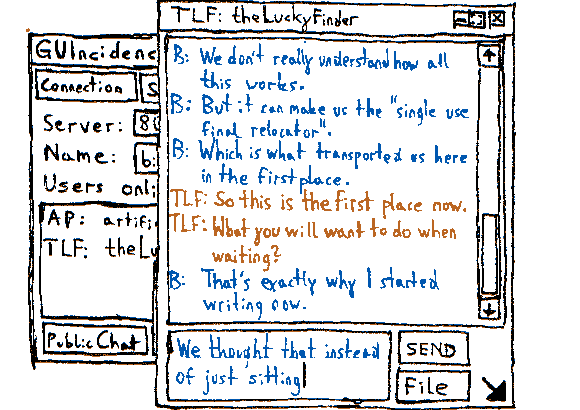 TLF: theLuckyFinder
B: We don't really understand how all
this works.
B: But it can make us the "single use
final relocator".
B: Which is what transported us here
in the first place.
TLF: So this is the first place now.
TLF: What you will want to do when
waiting?
B: That's exactly why I started
writing now.
We thought that instead
of just sitting
SEND
File
GUIncidenc
Connection
S
Server:
Name:
Users onli
AP: artifi
TLF: theLu
Public Chat